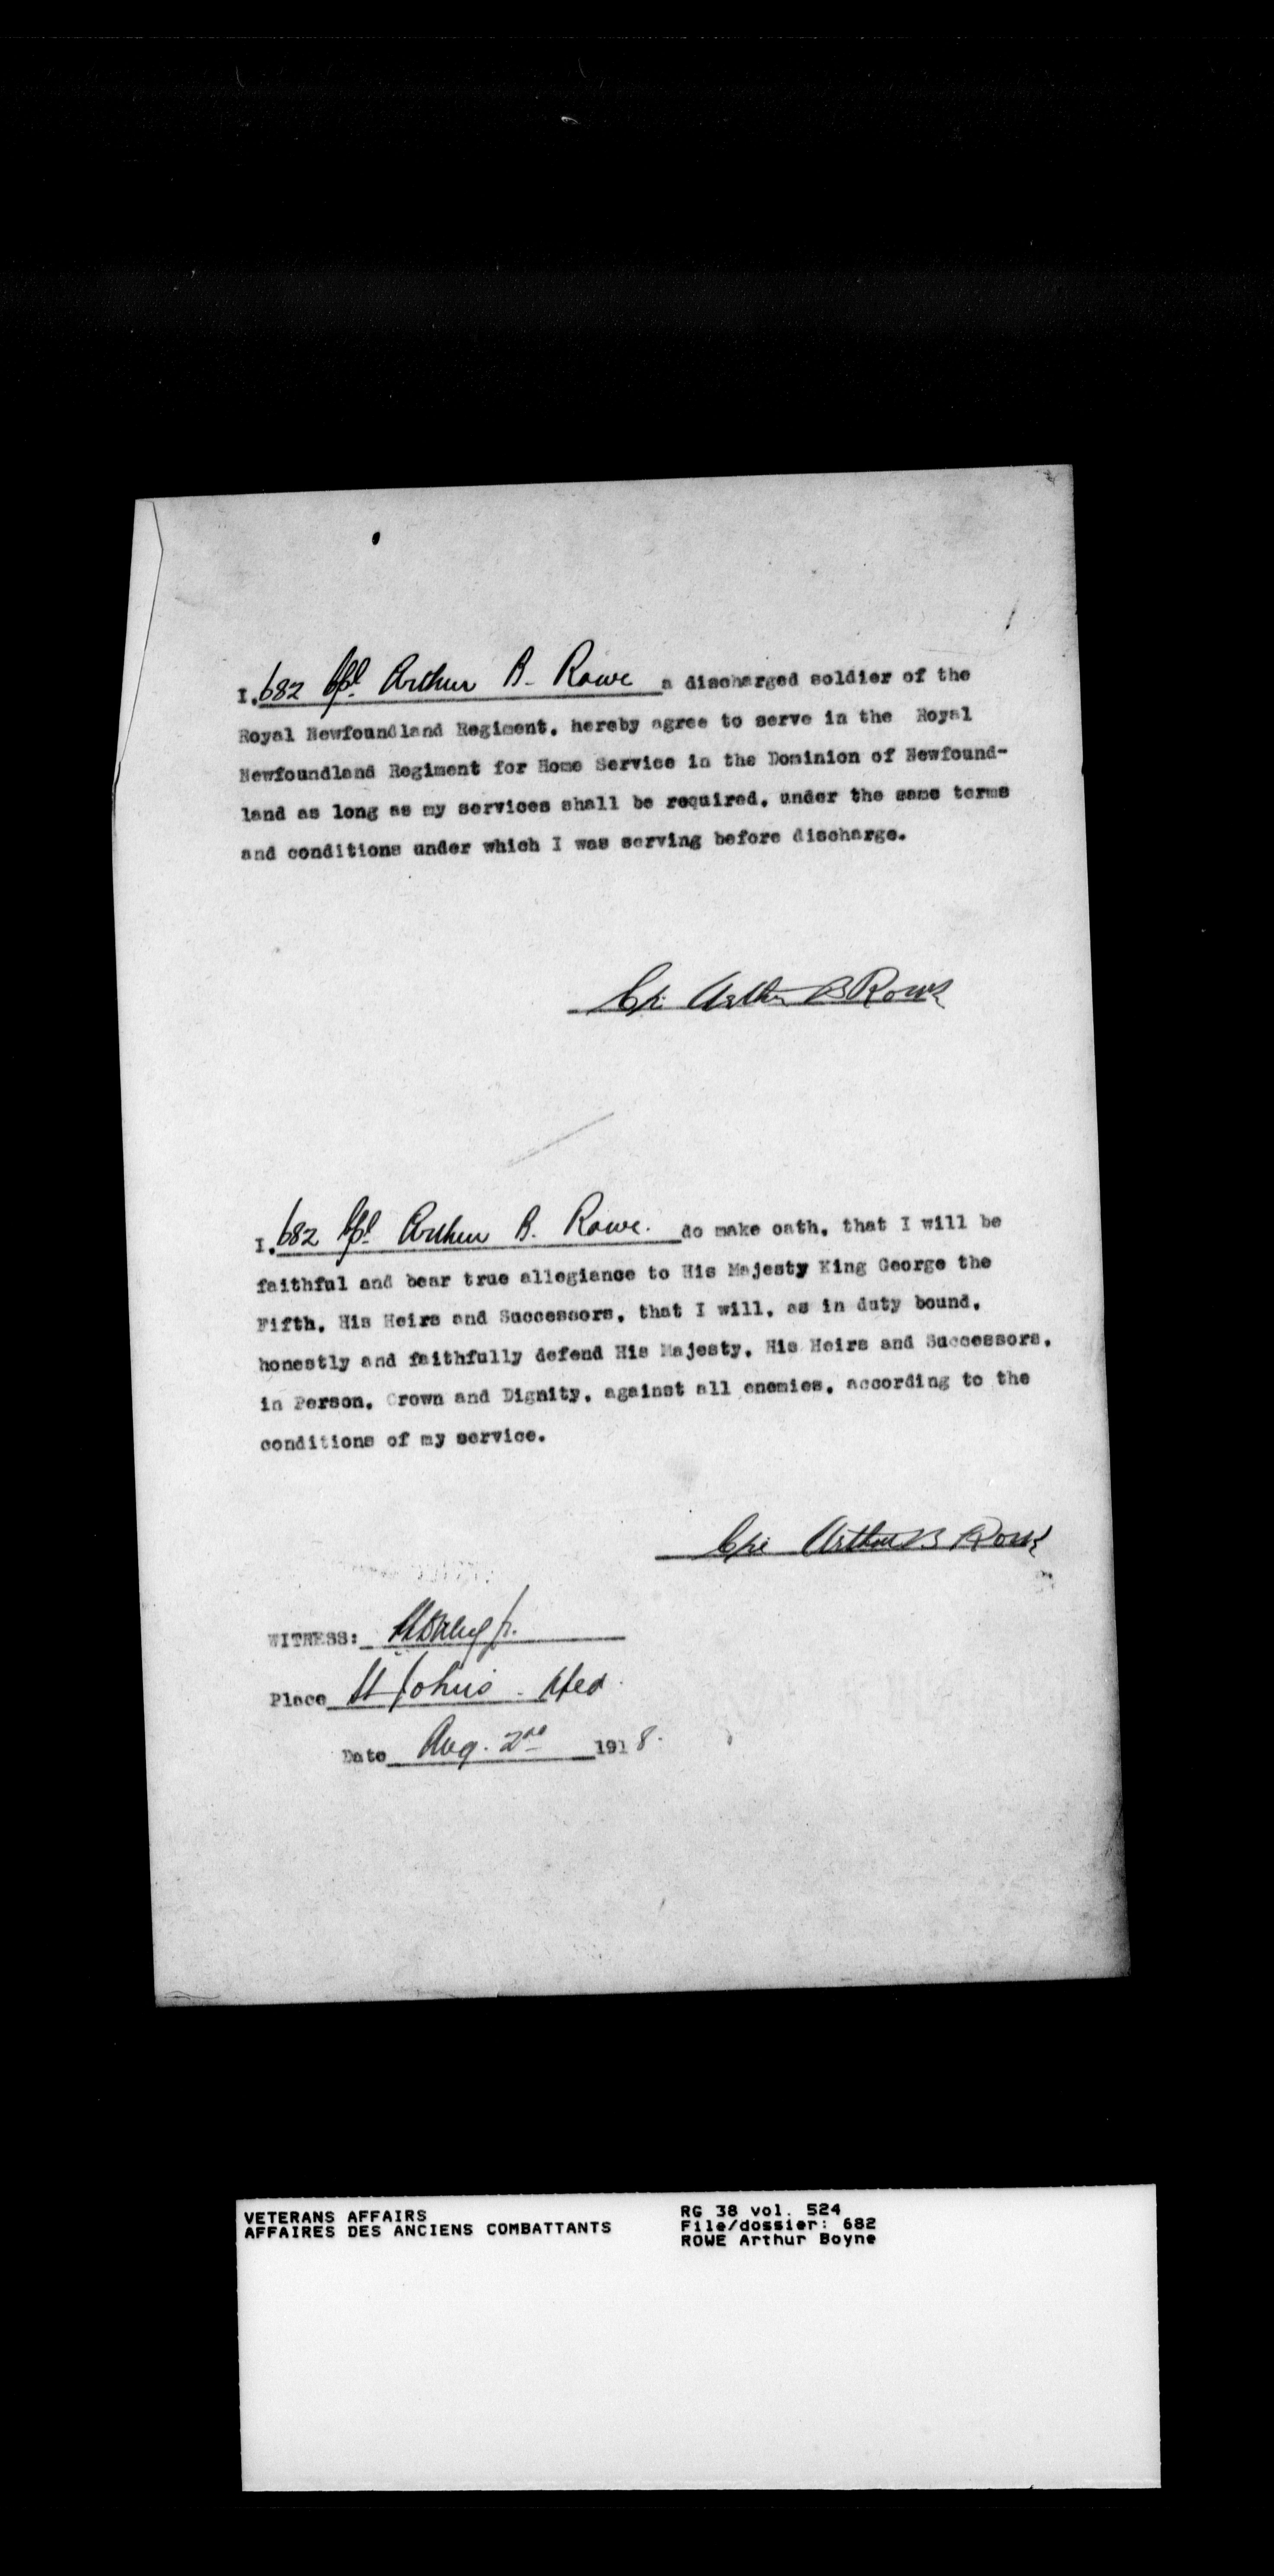 I, 682 Cpl Arthur B. Rowe a discharged soldier of the
Royal Newfoundland Regiment, hereby agree to serve in the Royal
Newfoundland Regiment for Home Service in the Dominion of Newfound-
land as long as my services shall be required, under the same terms
and conditions under which I was serving before discharge.
Cpl Arthur B Rowe
I, 682 Cpl Arthur B. Rowe. do make oath, that I will be
faithful and bear true allegiance to His Majesty King George the
Fifth, His Heirs and Successors, that I will, as in duty bound,
honestly and faithfully defend His Majesty, His Heirs and Successors,
in Person, Crown and Dignity, against all enemies, according to the
conditions of my service.
Cpl Arthur B Rowe
WITNESS: Jr.
Place St Johns. Nfld.
Date Aug. 2nd 1918.
VETERANS AFFAIRS
AFFAIRES DES ANCIENS COMBATTANTS
RG 38 vol. 524
File/dossier: 682
ROWE Arthur Boyne